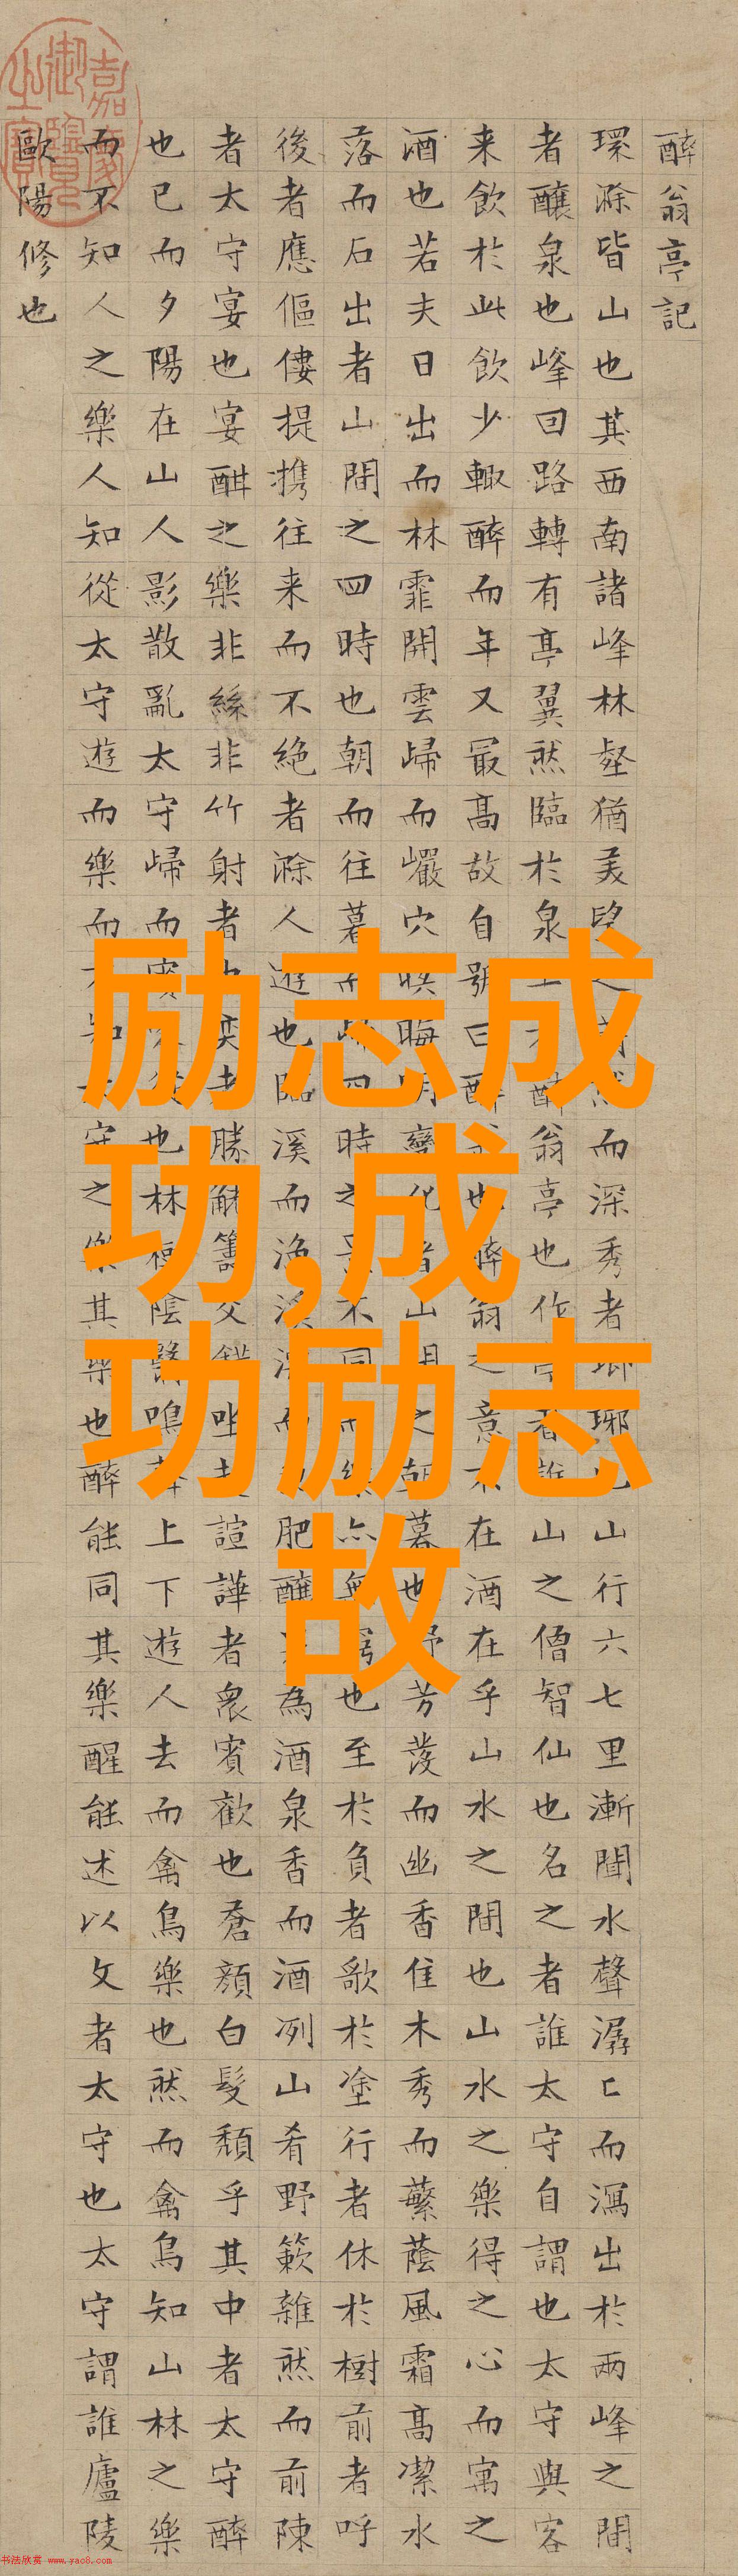 醉翁亭記
環滁皆山也其西南諸峰林壑猶美望而深秀者琊山行六七里漸聞水聲潺匕而瀉出於兩峰之間
者釀泉也峰回路轉有亭翼然臨於泉醉翁亭也作者山之僧智仙也名之者誰太守自謂也太守與客
来飲於此飲少輙醉而年又最高故自號曰醉也醉翁之意在酒在乎山水之間也山水之樂得之心而寓之
酒也若夫日出而林霏開雲歸而巖穴暝晦明變化者山間之朝暮也野芳發而幽香佳木秀而蘩蔭風霜高潔水
落而石出者山間之四時也朝而往暮而歸四時之景不同樂亦無窮也至於負者歌於塗行者休於樹前者呼
後者應傴僂提攜往来而不絕者滁人遊也臨溪而漁溪深而肥釀為酒泉香而酒冽山肴野簌雜然而前陳
者太守宴也宴酣之樂非絲非竹射者奕者勝觥籌交錯坐諠譁者眾賓歡也蒼顏白髮頹乎其中者太守醉
也已而夕陽在山人影散亂太守歸而賓從也林陰翳鳴上下遊人去而禽鳥樂也然而禽鳥知山林之樂
而不知人之樂人知從太守遊而樂而知守之樂其樂也醉能同其樂醒能述以文者太守也太守謂誰廬陵
歐陽修也
嘉慶御覽之寶
励志成
功,成
功励志
故
书法欣赏 www.yac8.com